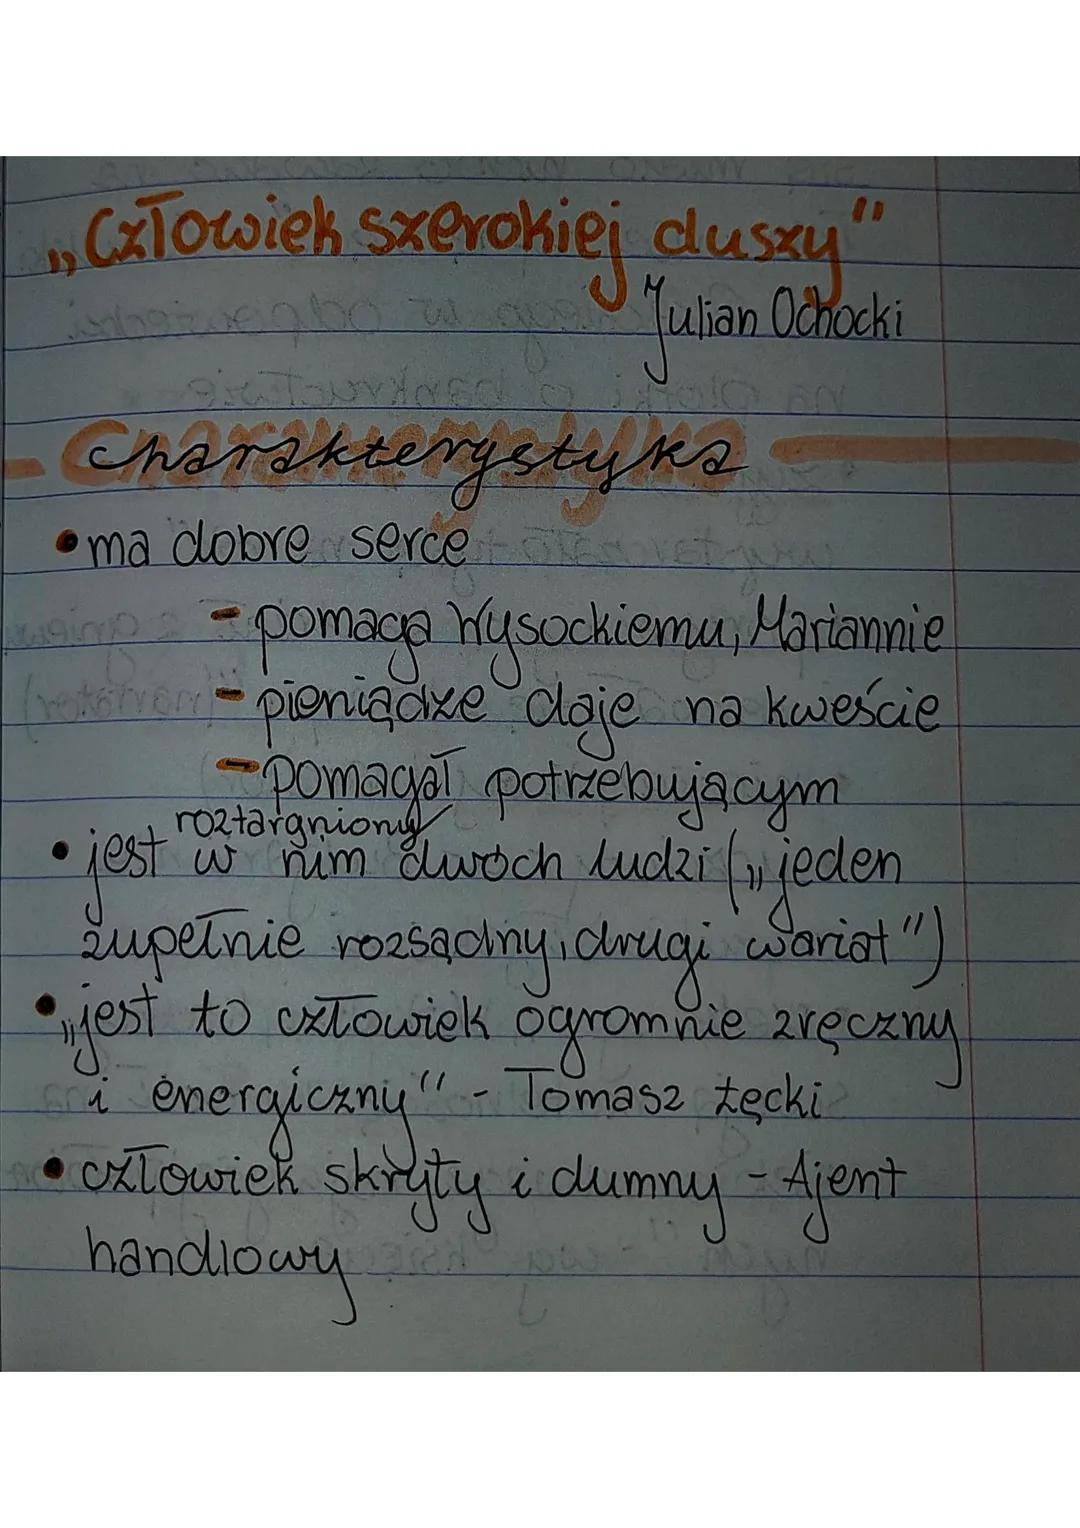 „Człowiek szerokiej duszy"
Julian Ochocki
Charakterystyka
• ma dobre serce
- pomaga Wysockiemu, Mariannie
- pieniądze daje na kweście
- pomagał potrzebującym
roztargniony
• jest w nim dwóch ludzi („jeden
zupełnie rozsądny, drugi wariat")
• „jest to człowiek ogromnie zręczny
i energiczny" - Tomasz Łęcki
• człowiek skryty i dumny - Ajent
handlowy